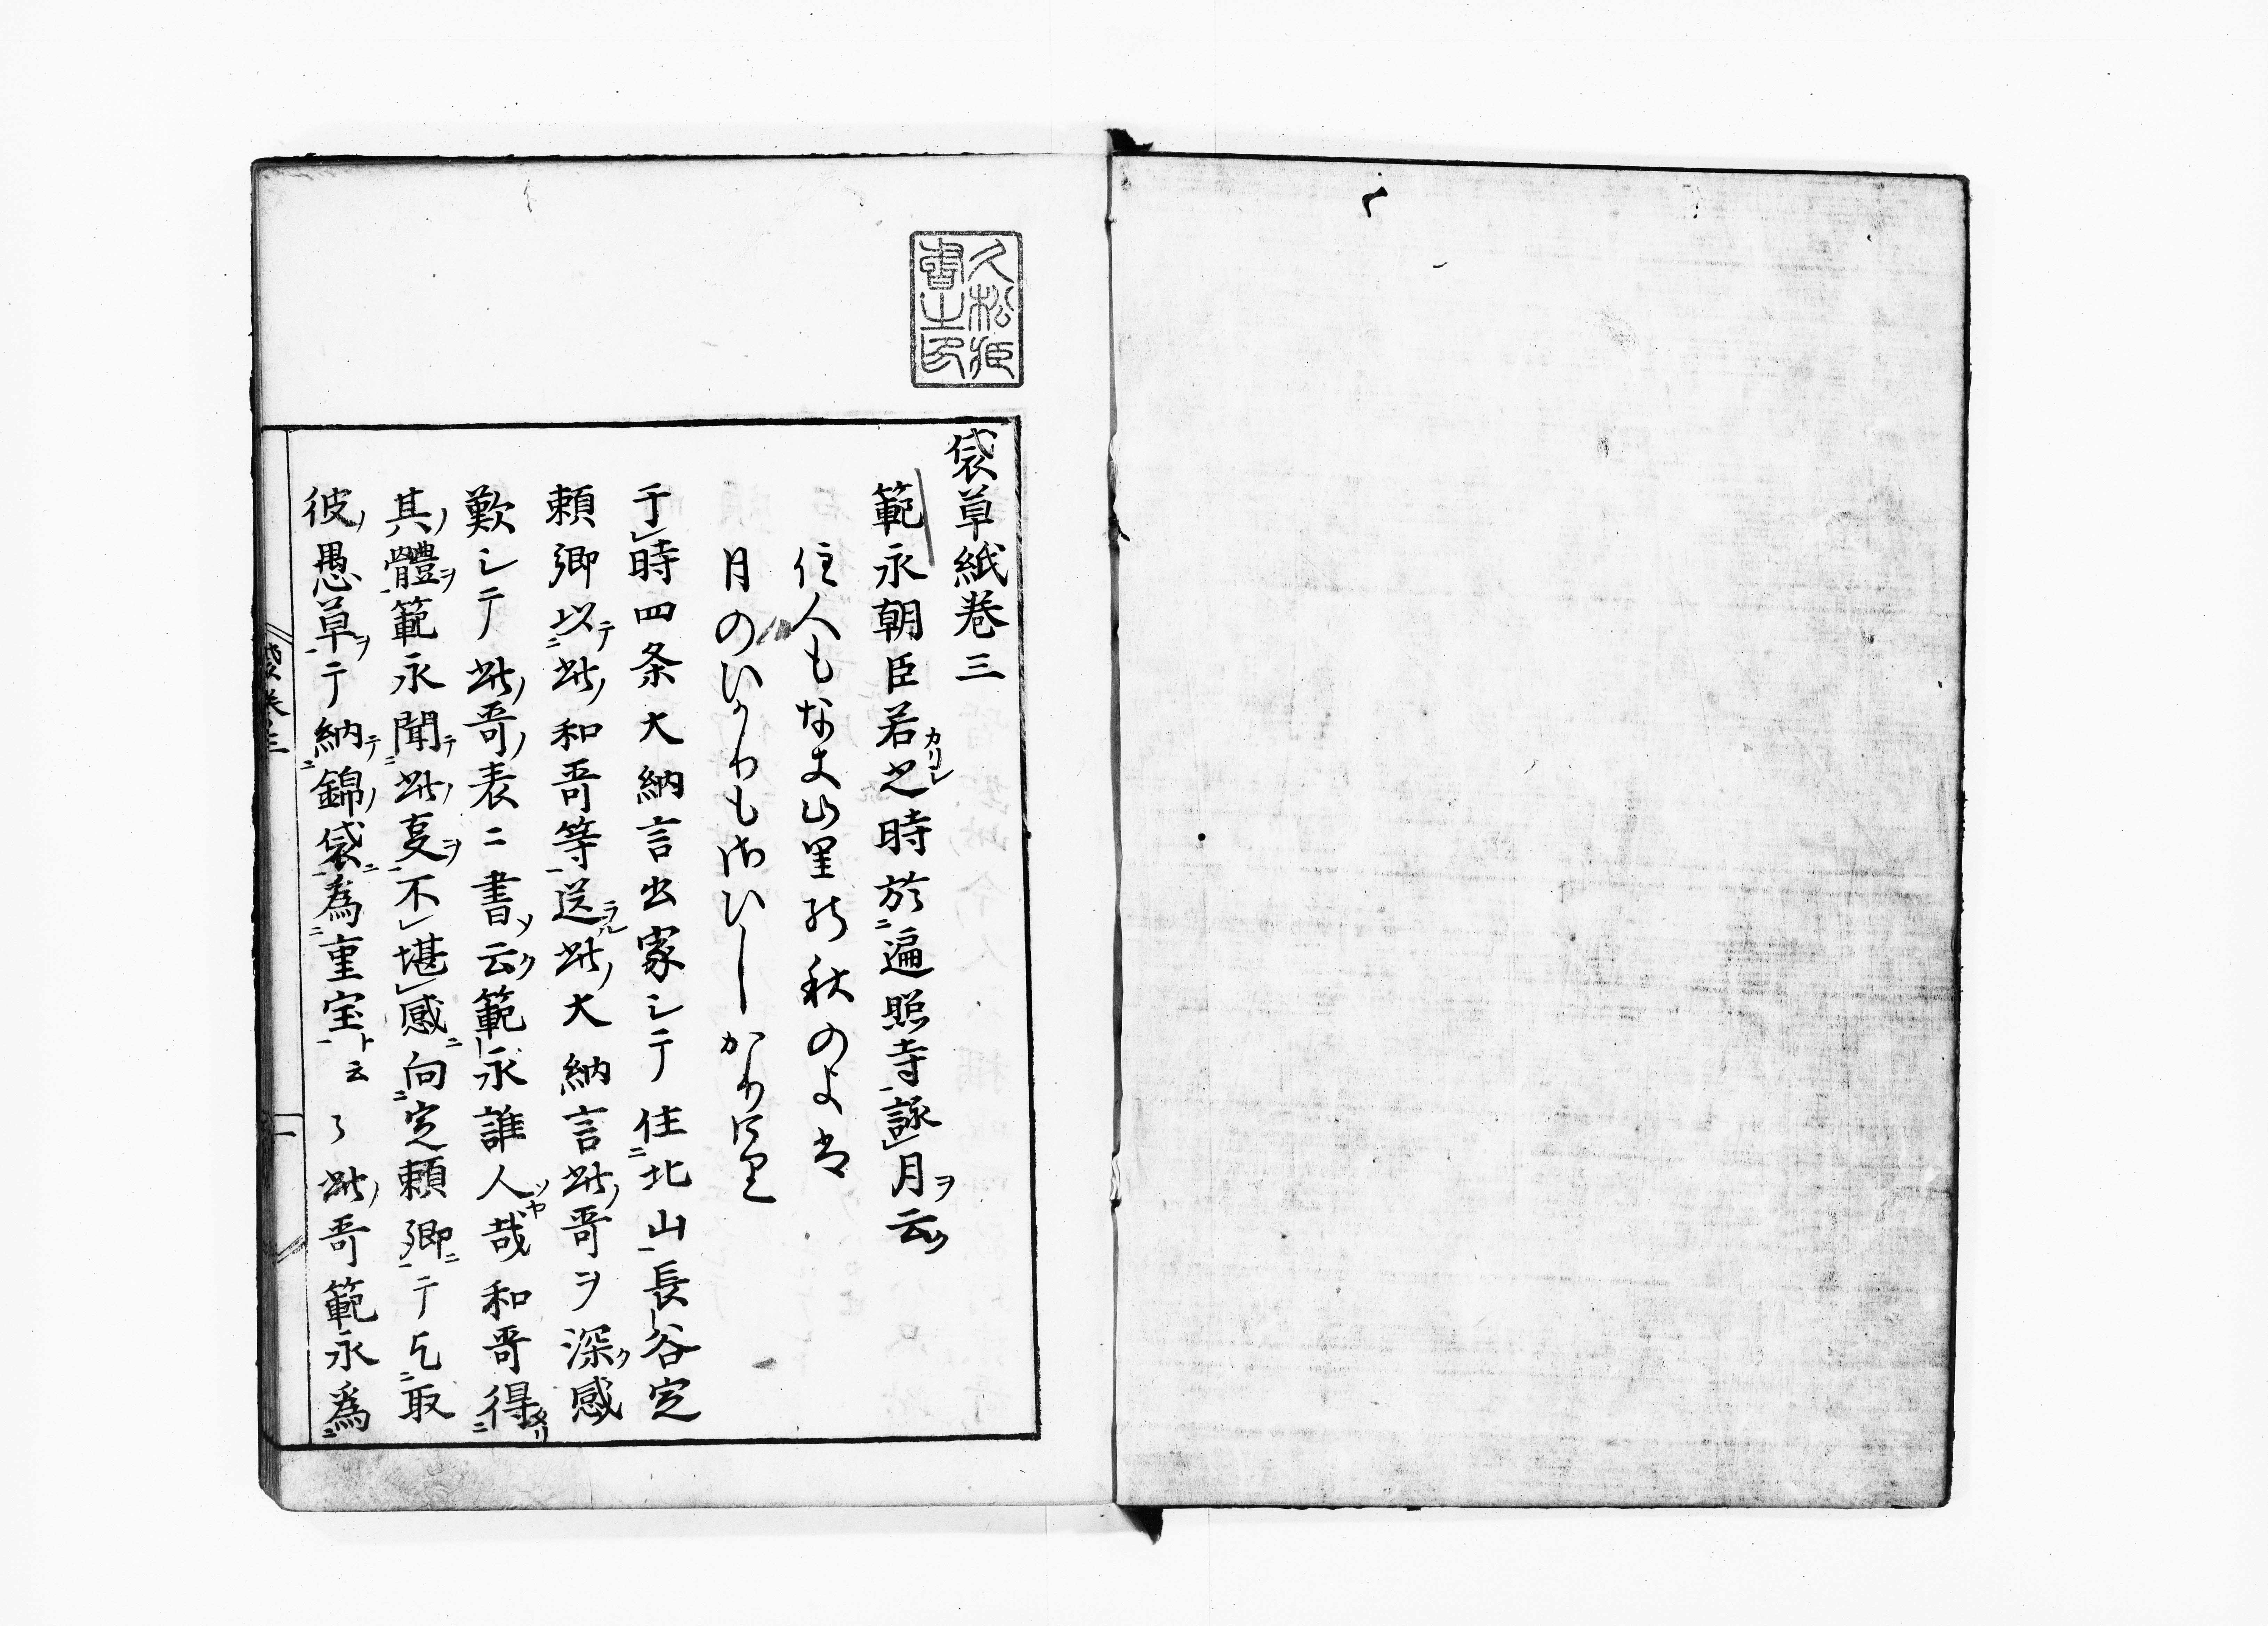 袋草紙巻三
範永朝臣若之時於遍照寺詠月云
住人もなき山里の秋のよは
月のひかりもさひしかりけり
于時四条大納言出家シテ住北山長谷定
頼卿以此和哥等送此大納言此哥ヲ深感
歎シテ此哥表ニ書云範永誰人哉和哥得
其體範永聞此事不堪感向定頼卿テ乞取
彼愚草テ納錦袋為重宝ト云々此哥範永為
袋巻三 一